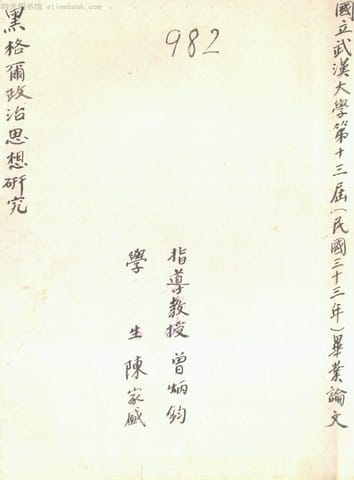 时光书馆 atimebook.com
982
國立武漢大學第十三屆(民國三十三年)畢業論文
黑格爾政治思想研究
指導教授 曾炳鈞
學生 陳家